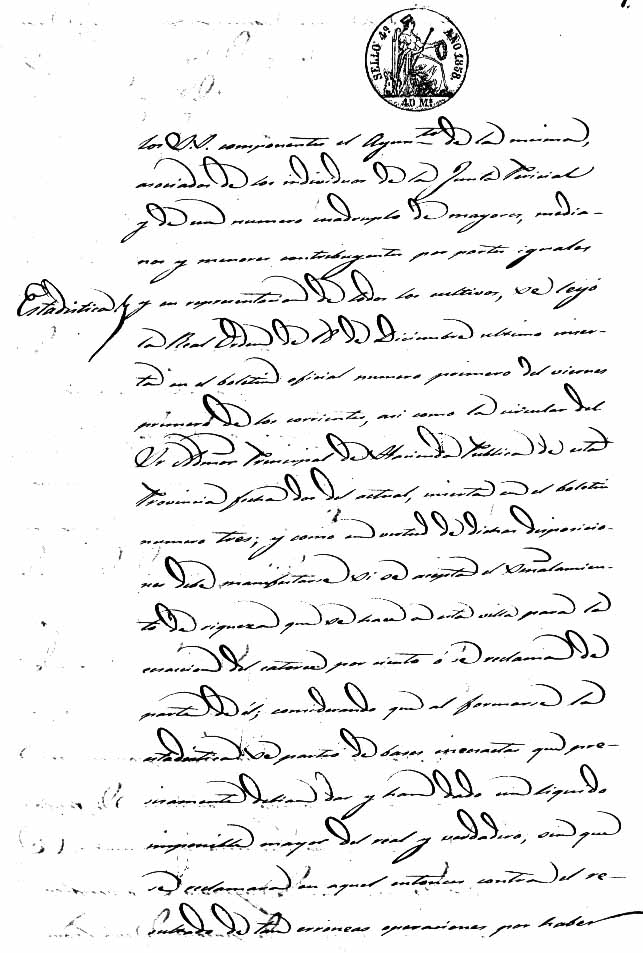 1.
SELLO 4º AÑO 1858.
40 Ms.
los SS. componentes el Ayunto de la misma,
asociados de los individuos de la Junta Pericial
y de un numero cuadruplo de mayores, media-
nos y menores contribuyentes por partes iguales
Estadistica y en representacion de todos los cultivos, se leyó
la Real Orden de 18 de Diciembre ultimo inser-
ta en el boletin oficial numero primero del viernes
primero de los corrientes, asi como la circular del
Sr Admor Principal de Hacienda Publica de esta
Provincia fecha dos del actual, inserta en el boletin
numero tres; y como en virtud de dichas disposicio-
nes debe manifestarse si se acepta el señalamien-
to de riqueza que se hace a esta villa para la
ecsaccion del catorce por ciento ó se reclama de
parte de él; considerando que al formarse la
estadistica se partio de bases inecsactas que pre-
cisamente debian dar y han dado un liquido
imponible mayor del real y verdadero, sin que
se reclamara en aquel entonces contra el re-
sultado de tan erroneas operaciones por haber